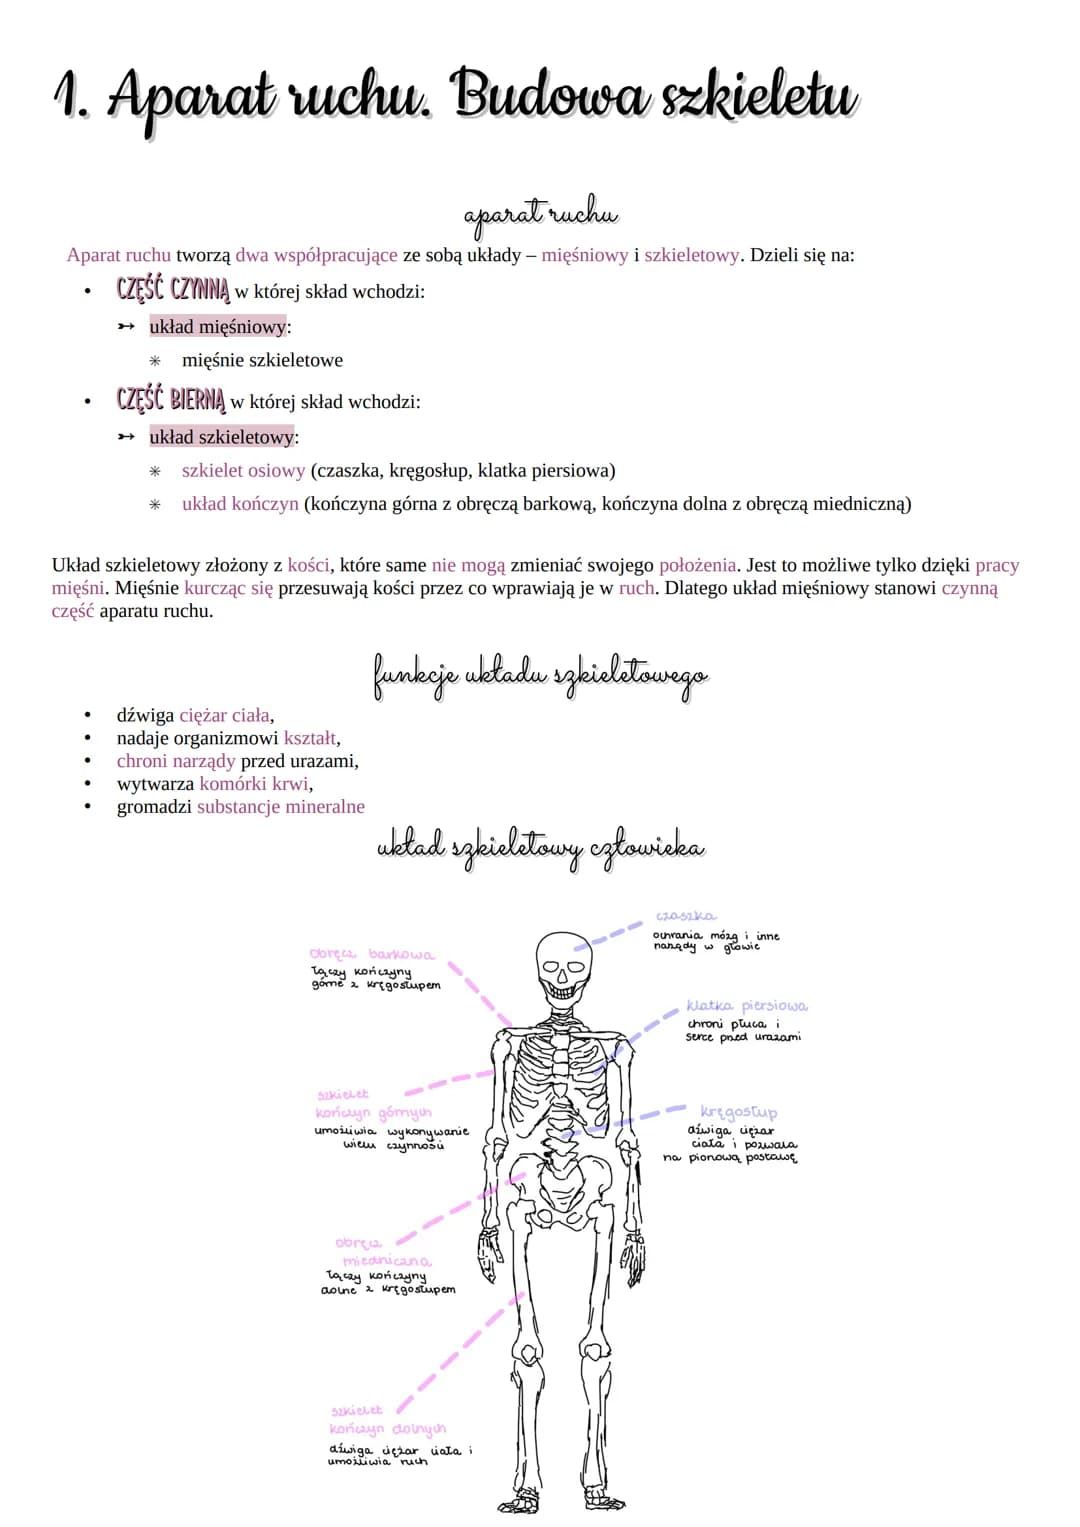 1. Aparat ruchu. Budowa szkieletu
aparat ruchu
Aparat ruchu tworzą dwa współpracujące ze sobą układy – mięśniowy i szkieletowy. Dzieli się na:
• CZĘŚĆ CZYNNĄ w której skład wchodzi:
➳ układ mięśniowy:
✳ mięśnie szkieletowe
• CZĘŚĆ BIERNĄ w której skład wchodzi:
➳ układ szkieletowy:
✳ szkielet osiowy (czaszka, kręgosłup, klatka piersiowa)
✳ układ kończyn (kończyna górna z obręczą barkową, kończyna dolna z obręczą miedniczną)
Układ szkieletowy złożony z kości, które same nie mogą zmieniać swojego położenia. Jest to możliwe tylko dzięki pracy
mięśni. Mięśnie kurcząc się przesuwają kości przez co wprawiają je w ruch. Dlatego układ mięśniowy stanowi czynną
część aparatu ruchu.
funkcje układu szkieletowego
• dźwiga ciężar ciała,
• nadaje organizmowi kształt,
• chroni narządy przed urazami,
• wytwarza komórki krwi,
• gromadzi substancje mineralne
układ szkieletowy człowieka
czaszka
ochrania mózg i inne
narządy w głowie
obręcz barkowa
łączy kończyny
górne z kręgosłupem
klatka piersiowa
chroni płuca i
serce przed urazami
szkielet
kończyn górnych
umożliwia wykonywanie
wielu czynności
kręgosłup
dźwiga ciężar
ciała i pozwala
na pionową postawę
obręcz
miedniczna
łączy kończyny
dolne z kręgosłupem
szkielet
kończyn dolnych
dźwiga ciężar ciała i
umożliwia ruch